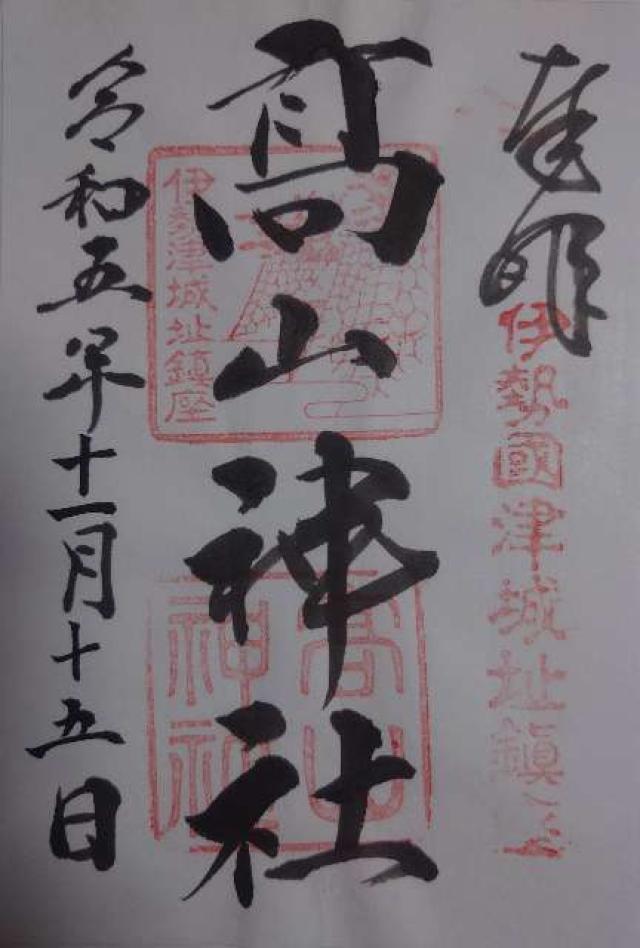 奉拝
伊勢國津城址鎮座
高山神社
伊勢津城址鎮座
高山神社
令和五年十一月十五日